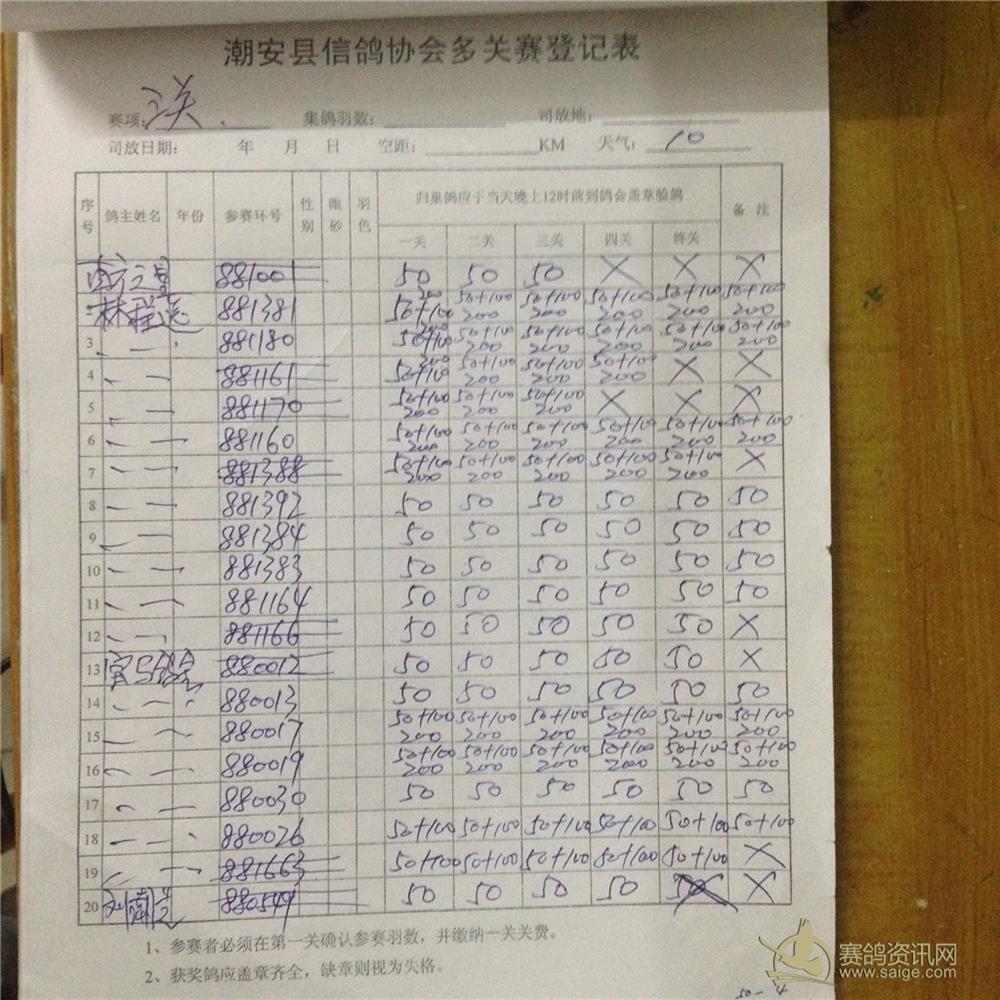 潮安县信鸽协会多关赛登记表
赛项: 集鸽羽数: 司放地:
司放日期: 年 月 日 空距: KM 天气: 10
序号 鸽主姓名 年份 参赛环号 性别 眼砂 羽色 归巢鸽应于当天晚上12时前到鸽会盖章验鸽 备注
一关 二关 三关 四关 终关
881001 50 50 50 X X X
881381 50+100 200 50+100 200 50+100 200 50+100 200 50+100 200 50+100 200
3 881180 50+100 200 50+100 200 50+100 200 50+100 200 50+100 200 50+100 200
4 881161 50+100 200 50+100 200 50+100 200 50+100 200 X X
5 881170 50+100 200 50+100 200 50+100 200 X X X
6 881160 50+100 200 50+100 200 50+100 200 50+100 200 50+100 200 50+100 200
7 881388 50+100 200 50+100 200 50+100 200 50+100 200 50+100 200 X
8 881392 50 50 50 50 50 50
9 881384 50 50 50 50 50 50
10 881383 50 50 50 50 50 50
11 881164 50 50 50 50 50 50
12 881166 50 50 50 50 50 X
13 880012 50 50 50 50 50 X
14 880013 50 50 50 50 50 50
15 880017 50+100 200 50+100 200 50+100 200 50+100 200 50+100 200 50+100 200
16 880019 50+100 200 50+100 200 50+100 200 50+100 200 50+100 200 50+100 200
17 880030 50 50 50 50 50 50
18 880026 50+100 50+100 50+100 50+100 50+100 50+100
19 881663 50+100 50+100 50+100 50+100 50+100 X
20 880549 50 50 50 50 50 X
1、参赛者必须在第一关确认参赛羽数，并缴纳一关关费。
2、获奖鸽应盖章齐全，缺章则视为失格。
赛鸽资讯网
www.saige.com